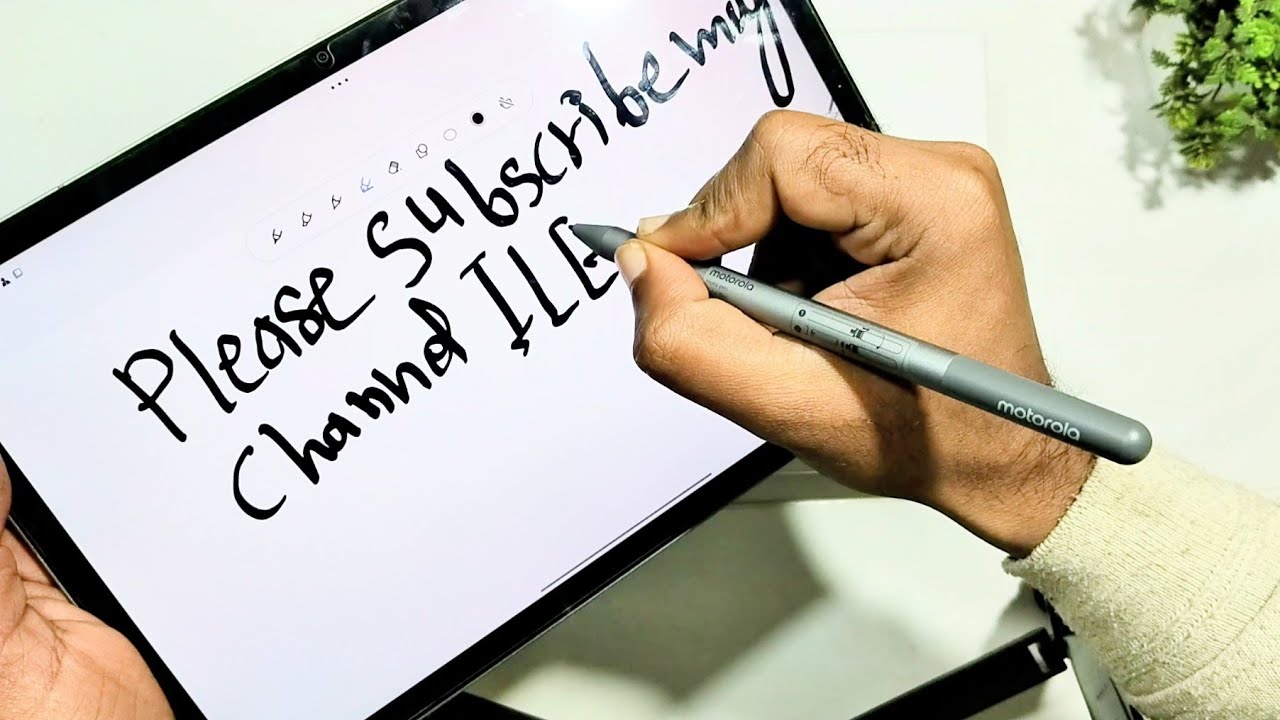 Please Subscribe my
Channel ILE
motorola
motorola